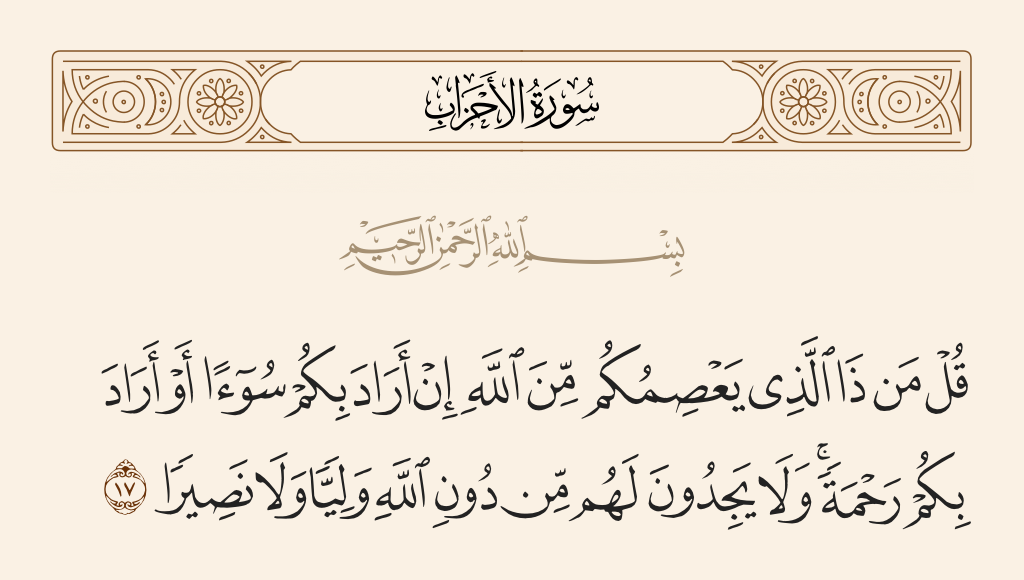 سُورَةُ الأَحْزَابِ
بِسْمِ ٱللَّهِ ٱلرَّحْمَٰنِ ٱلرَّحِيمِ
قُلْ مَن ذَا ٱلَّذِى يَعْصِمُكُم مِّنَ ٱللَّهِ إِنْ أَرَادَ بِكُمْ سُوٓءًا أَوْ أَرَادَ
بِكُمْ رَحْمَةً ۚ وَلَا يَجِدُونَ لَهُم مِّن دُونِ ٱللَّهِ وَلِيًّا وَلَا نَصِيرًا ١٧